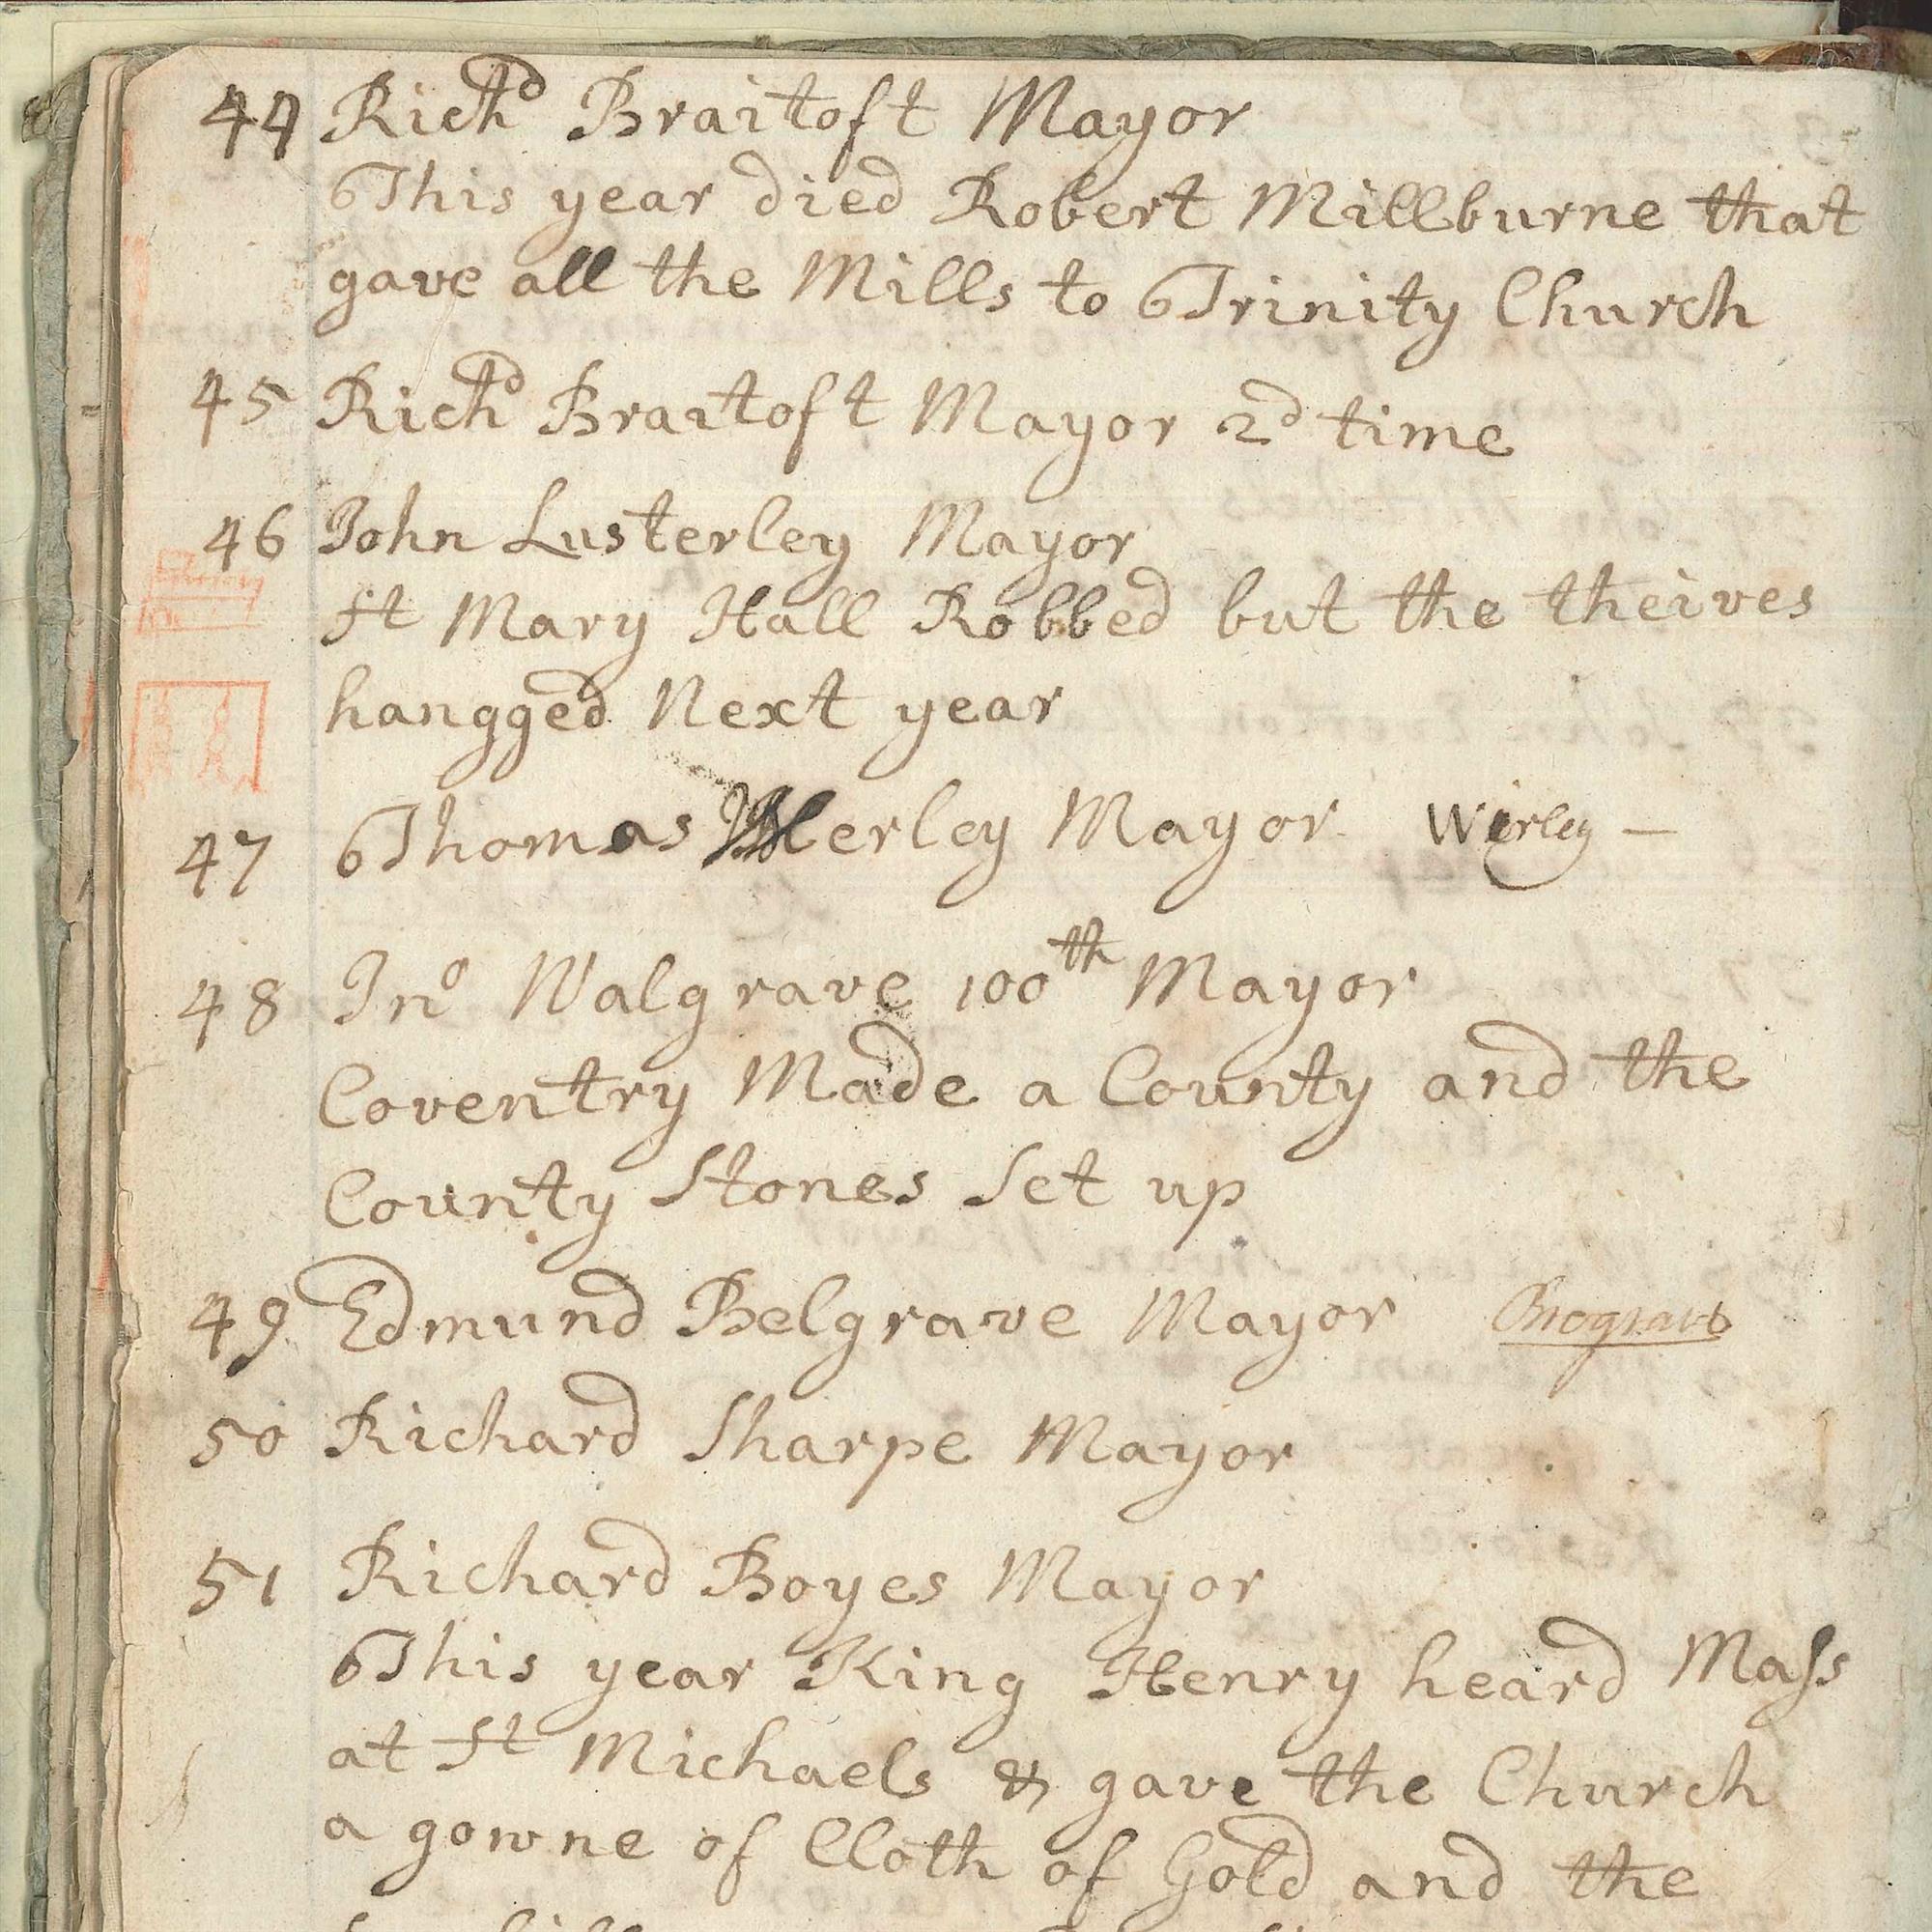 44 Richd Braitoft Mayor
This year died Robert Millburne that
gave all the Mills to Trinity Church
45 Richd Braitoft Mayor 2d time
46 John Lusterley Mayor
St Mary Hall Robbed but the theives
hangged Next year
47 Thomas Werley Mayor Wirley —
48 Jno Walgrave 100th Mayor
Coventry Made a County and the
County Stones Set up
49 Edmund Belgrave Mayor Brograve
50 Richard Sharpe Mayor
51 Richard Boyes Mayor
This year King Henry heard Mass
at St Michaels & gave the Church
a gowne of Cloth of Gold and the